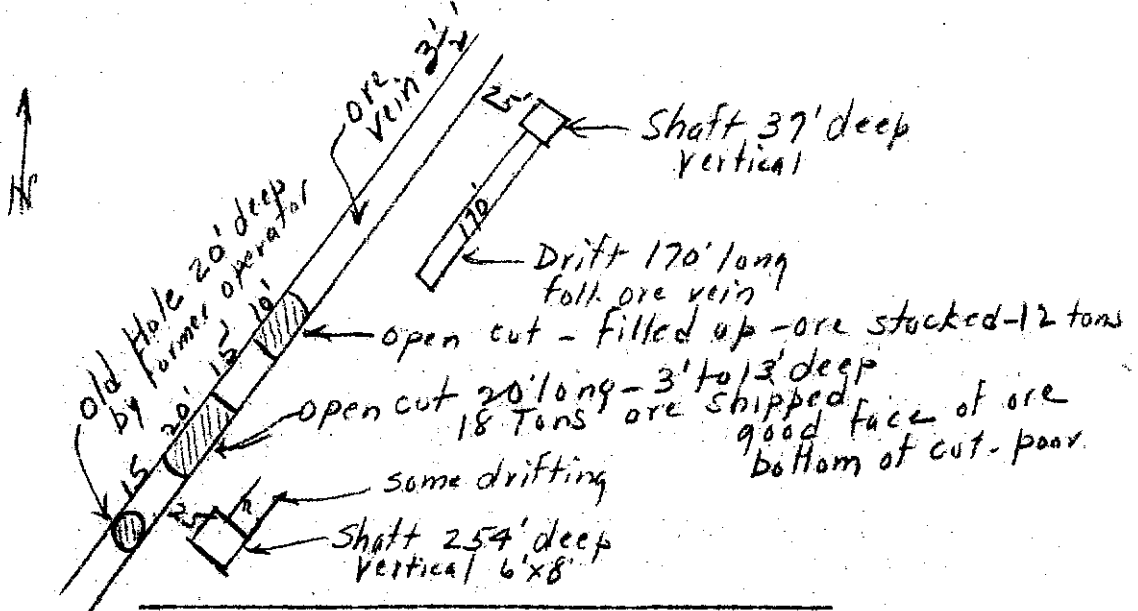 ore
vein 3½'
25'
Shaft 37' deep
vertical
N
170'
Drift 170' long
foll. ore vein
old Hole 20' deep
by former operator
10'
15'
20'
15
open cut - filled up - ore stacked - 12 tons
open cut 20' long - 3' to 13' deep
18 Tons ore shipped
good face of ore
bottom of cut - poor
some drifting
25
?
Shaft 254' deep
vertical 6'x8'